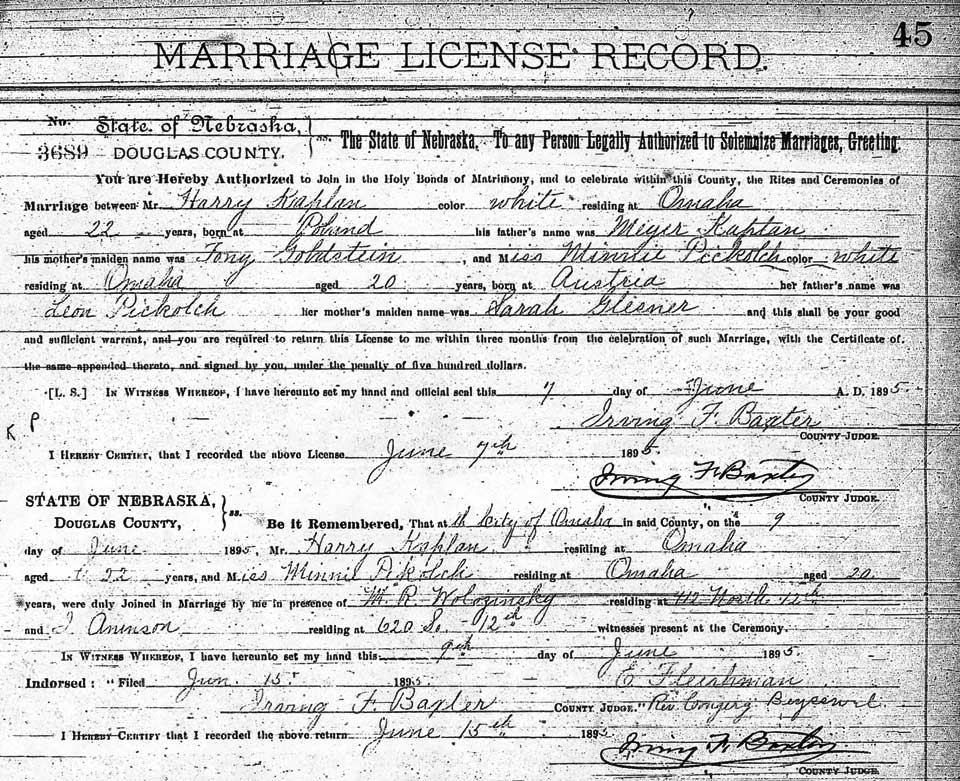 45
MARRIAGE LICENSE RECORD.
No. State of Nebraska, } ss. The State of Nebraska, To any Person Legally Authorized to Solemnize Marriages, Greeting:
3689 DOUGLAS COUNTY.
You are Hereby Authorized to Join in the Holy Bonds of Matrimony, and to celebrate within this County, the Rites and Ceremonies of
Marriage between Mr. Harry Kaplan color white residing at Omaha
aged 22 years, born at Poland his father's name was Meyer Kaplan
his mother's maiden name was Fony Goldstein, and Miss Minnie Pickolch color white
residing at Omaha aged 20 years, born at Austria her father's name was
Leon Pickolch her mother's maiden name was Sarah Glesner and this shall be your good
and sufficient warrant, and you are required to return this License to me within three months from the celebration of such Marriage, with the Certificate of
the same appended thereto, and signed by you, under the penalty of five hundred dollars.
[L. S.] IN WITNESS WHEREOF, I have hereunto set my hand and official seal this 7 day of June A. D. 1895
Irving F. Baxter
COUNTY JUDGE.
K P
I HEREBY CERTIFY, that I recorded the above License June 7th 1895.
Irving F. Baxter
COUNTY JUDGE.
STATE OF NEBRASKA, } ss.
DOUGLAS COUNTY, Be it Remembered, That at th City of Omaha in said County, on the 9
day of June 1895, Mr. Harry Kaplan residing at Omaha
aged 22 years, and Miss Minnie Pikolch residing at Omaha aged 20
years, were duly Joined in Marriage by me in presence of M. R. Wolozinsky residing at 412 North 12th
and J Aninson residing at 620 So. 12th witnesses present at the Ceremony.
IN WITNESS WHEREOF, I have hereunto set my hand this 9th day of June 1895.
Indorsed: "Filed Jun. 15 1895. E. Fleishman
Irving F. Baxter COUNTY JUDGE." Rev.
I HEREBY CERTIFY that I recorded the above return June 15th 1895
Irving F. Baxter
COUNTY JUDGE.